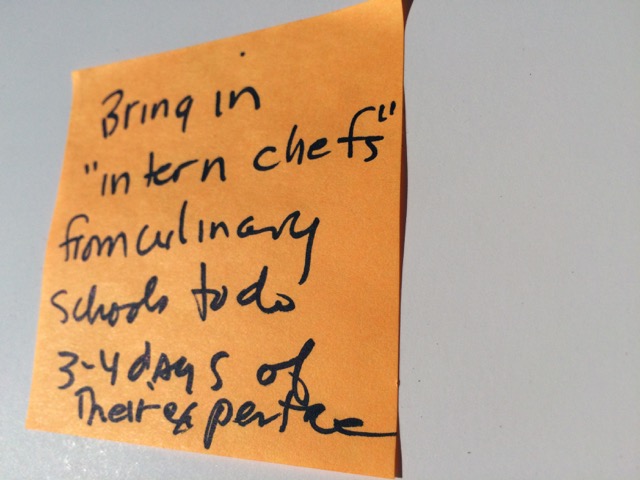 Bring in
"intern chefs"
from culinary
schools to do
3-4 days of
Their expertise